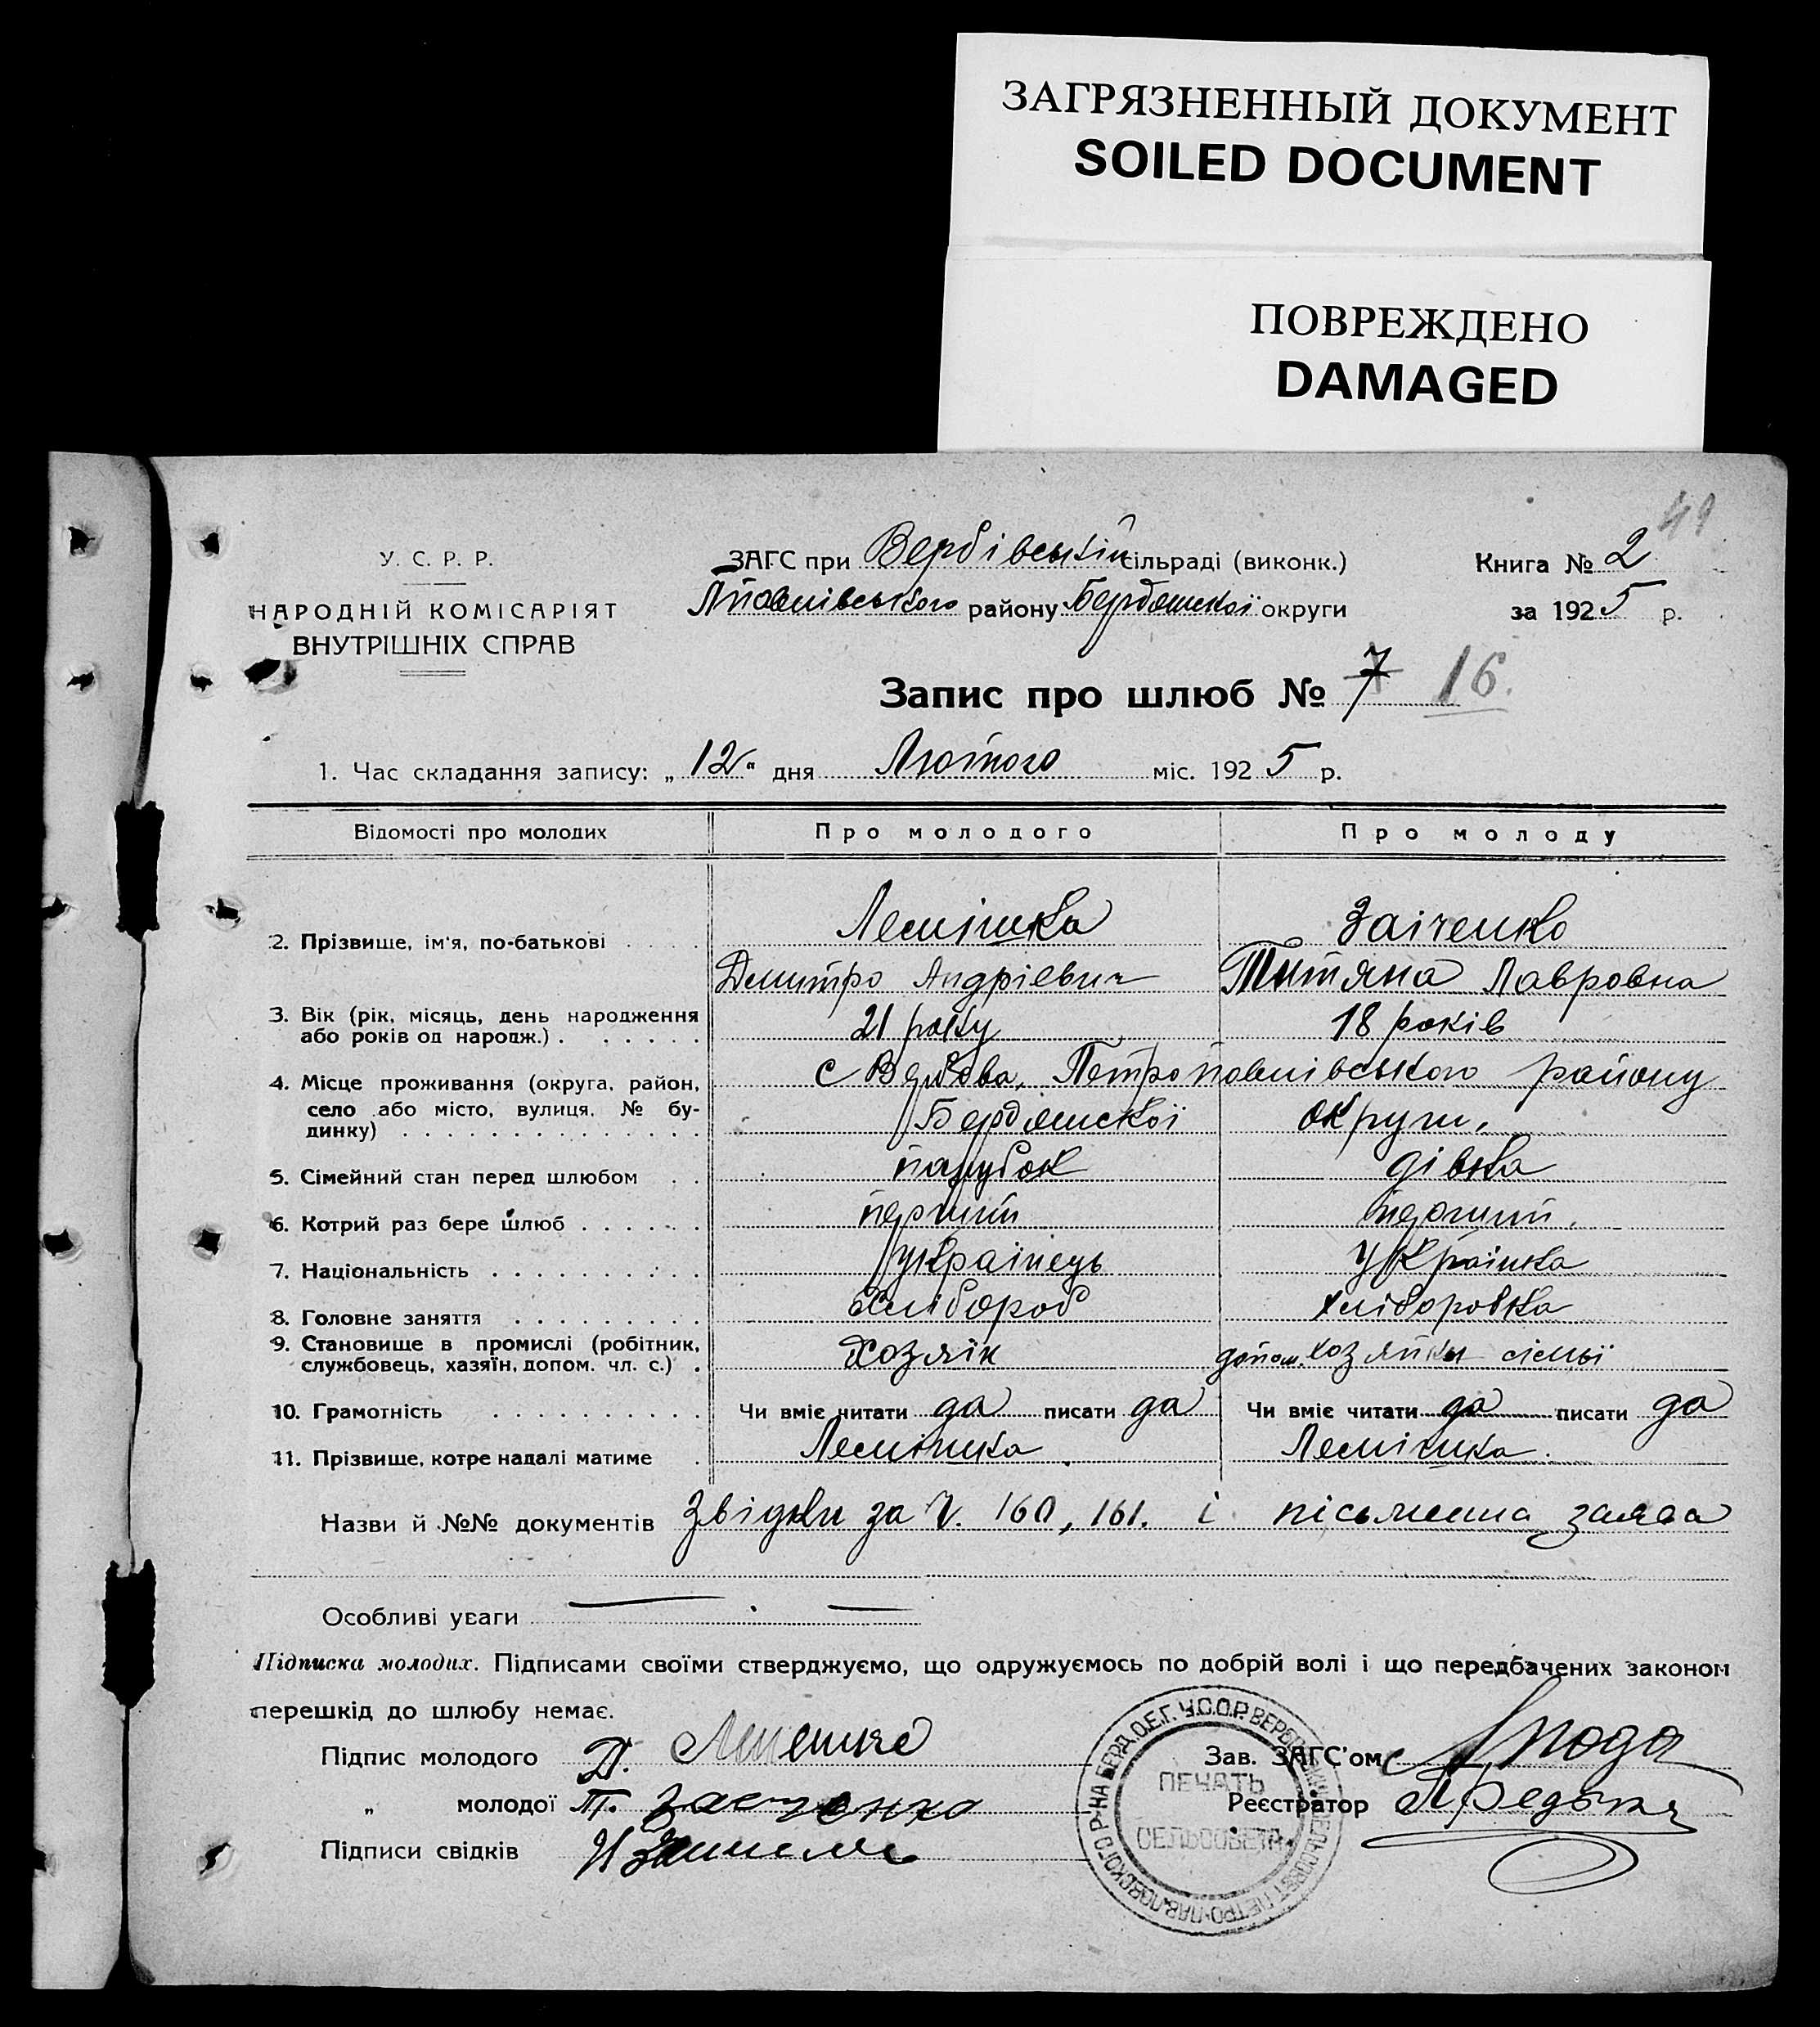 ЗАГРЯЗНЕННЫЙ ДОКУМЕНТ
SOILED DOCUMENT
ПОВРЕЖДЕНО
DAMAGED
49
У. С. Р. Р.
НАРОДНІЙ КОМІСАРІЯТ
ВНУТРІШНІХ СПРАВ
ЗАГС при Вербівський сільраді (виконк.)
Ппавлівського району Бердянської округи
Книга № 2
за 1925 р.
Запис про шлюб № 7 16.
1. Час складання запису: „12" дня Лютого міс. 1925 р.
Відомості про молодих Про молодого Про молоду
2. Прізвище, ім'я, по-батькові Лемішка Заіченко
Дмитро Андрієвич Титяна Лавровна
3. Вік (рік, місяць, день народження
або років од народж.) 21 року 18 років
4. Місце проживання (округа, район, с Вербова, Петропавлівського району
село або місто, вулиця, № бу-
динку) Бердянскої округи,
5. Сімейний стан перед шлюбом парубок дівка
6. Котрий раз бере шлюб перший перший.
7. Національність українець Українка
8. Головне заняття Хлібороб хліборобка
9. Становище в промислі (робітник,
службовець, хазяїн, допом. чл. с.) Хозяїн допом. хозяйки сімьї
10. Грамотність Чи вміє читати да писати да Чи вміє читати да писати да
11. Прізвище, котре надалі матиме Лемішка Лемішка.
Назви й №№ документів Звідки за Ч. 160, 161. і письменна заява
Особливі уваги
Підписка молодих. Підписами своїми стверджуємо, що одружуємось по добрій волі і що передбачених законом
перешкід до шлюбу немає.
Підпис молодого Д.
Зав. ЗАГС'ом
„ молодої Т. Заеченко
Реєстратор
Підписи свідків
ПЕЧАТЬ
СЕЛЬСОВЕТА